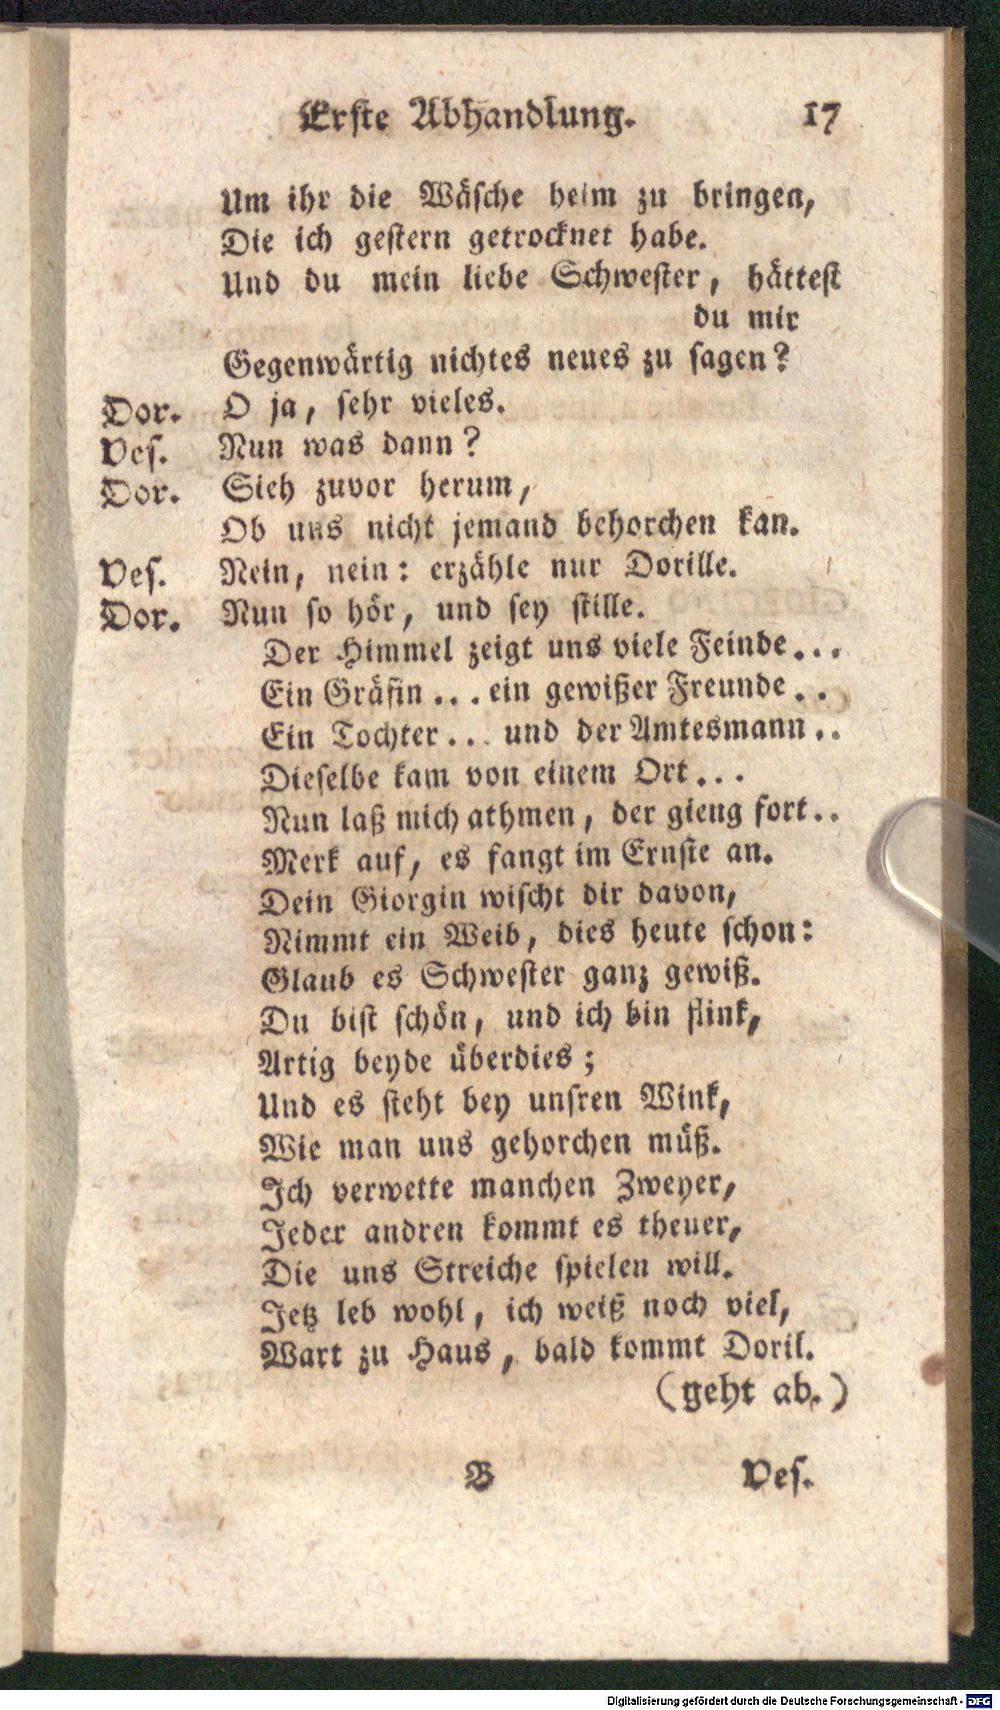 Erste Abhandlung. 17
Um ihr die Wäsche heim zu bringen,
Die ich gestern getrocknet habe.
Und du mein liebe Schwester, hättest
du mir
Gegenwärtig nichtes neues zu sagen?
Dor. O ja, sehr vieles.
Ves. Nun was dann?
Dor. Sieh zuvor herum,
Ob uns nicht jemand behorchen kan.
Ves. Nein, nein: erzähle nur Dorille.
Dor. Nun so hör, und sey stille.
Der Himmel zeigt uns viele Feinde...
Ein Gräfin... ein gewißer Freunde..
Ein Tochter... und der Amtesmann..
Dieselbe kam von einem Ort...
Nun laß mich athmen, der gieng fort..
Merk auf, es fangt im Ernste an.
Dein Giorgin wischt dir davon,
Nimmt ein Weib, dies heute schon:
Glaub es Schwester ganz gewiß.
Du bist schön, und ich bin flink,
Artig beyde überdies;
Und es steht bey unsren Wink,
Wie man uns gehorchen müß.
Ich verwette manchen Zweyer,
Jeder andren kommt es theuer,
Die uns Streiche spielen will.
Jetz leb wohl, ich weiß noch viel,
Wart zu Haus, bald kommt Doril.
(geht ab.)
B Ves.
Digitalisierung gefördert durch die Deutsche Forschungsgemeinschaft - DFG